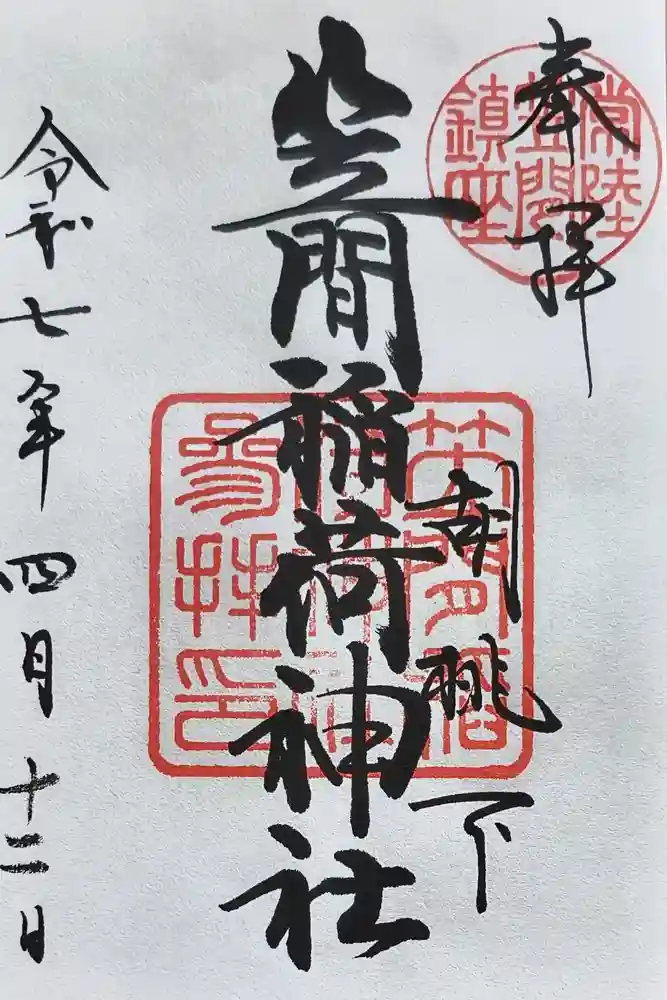 奉拝
常陸
笠間
鎮座
胡桃下
笠間稲荷神社
笠間稲
荷神社
参拝印
令和七年四月十二日